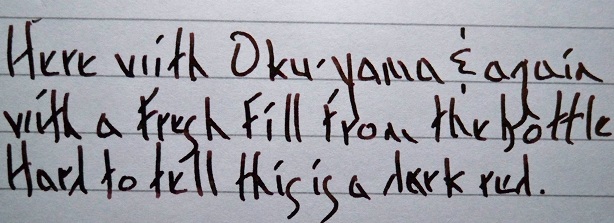 Here with Oku-yama & again
with a fresh fill from the bottle
Hard to tell this is a dark red.